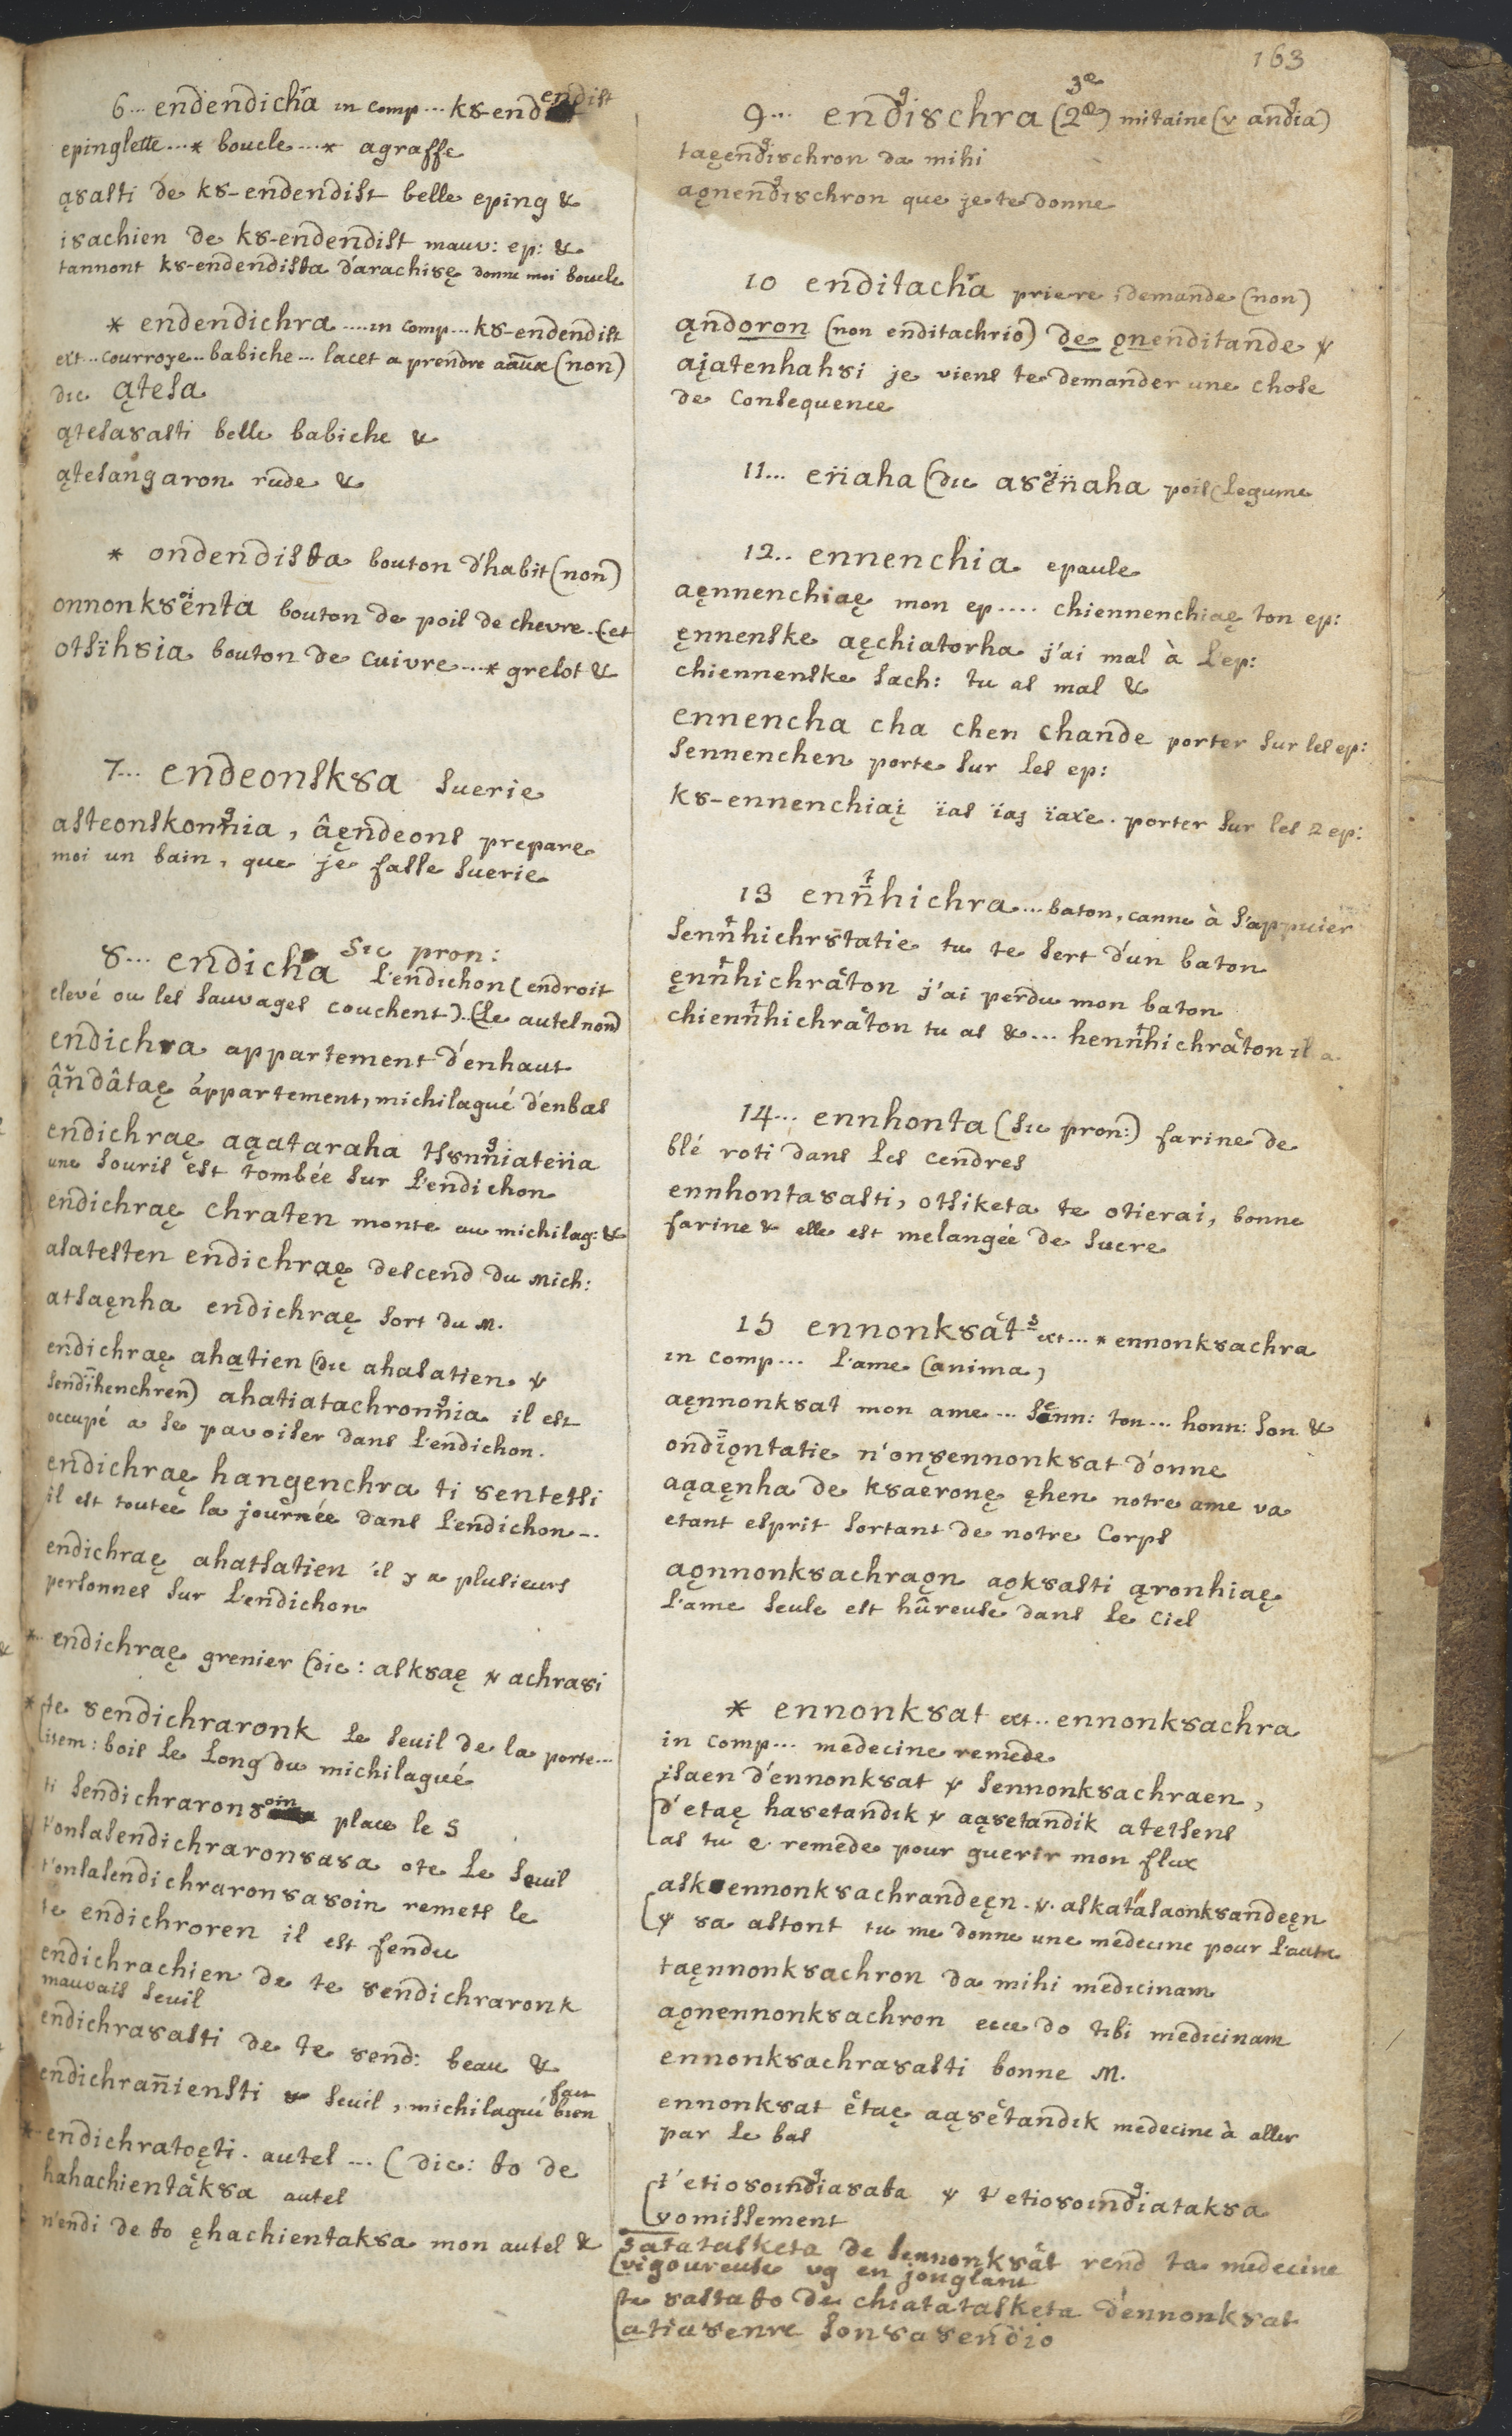 163
6... endendichra in comp... k8-endendist
epinglette...* boucle...* agraffe
ą8asti de k8-endendist belle eping &
isachien de k8-endendist mauv: ep: &
tannont k8-endendista d'arachi8ę donne moi boucle
* endendichra .... in comp... k8-endendist
ext... courroye... babiche... lacet a prendre (non)
dic ątesa
ątesa8asti belle babiche &
ątesangaron rude &
* ondendista bouton d'habit (non)
onnonk8enta bouton de poil de chevre. (et
otsihsia bouton de cuivre...* grelot &
7... endeonsk8a suerie
asteonskonnia, âęndeons prepare
moi un bain, que je fasse suerie
8... endicha sic pron:
L'endichon (endroit
elevé ou les sauvages couchent).. (Le autel non)
endichra appartement d'enhaut
ąndâtaę appartement, michilagué d'enbas
endichraę aąataraha ts8nniateña
une souris est tombée sur L'endichon
endichraę chraten monte au michilag: &
asatesten endichraę descend du mich:
atsaęnha endichraę sort du M.
endichraę ahatien (dic ahasatien. v
sendihenchren) ahatiatachronnia il est
occupé a se pavoiser dans L'endichon.
endichraę hangenchra ti 8entetsi
il est toutee la journée dans L'endichon...
endichraę ahatsatien il y a plusieurs
personnes sur L'endichon
*... endichraę grenier (dic: ask8aę v achra8i
* te 8endichraronk le seuil de la porte...
item: bois le long du michilagué
ti sendichraron8oin place le S
t'onsasendichraron8a8a ote le seuil
t'onsasendichraron8a8oin remets le
te endichroren il est fendu
endichrachien de te 8endichraronk
mauvais seuil
endichra8asti de te 8end: beau &
endichrañiensti seuil, michilagué fau bien
* endichratoęti. autel... (dic: to de
hahachientäk8a autel
n'endi de to ęhachientak8a mon autel &
9... endi8chra (2e) 3e mitaine (v andia)
taęendi8chron da mihi
aǫnendi8chron que je te donne
10 enditachra priere, demande (non)
ąndoron (non enditachrio) de ǫnenditande v
aįatenhah8i je viens te demander une chose
de consequence
11... eñaha (dic a8eñaha pois (legume
12.. ennenchia epaule
aęnnenchiaę mon ep.... chiennenchiaę ton ep:
ęnnenske aęchiatorha j'ai mal à L'ep:
chiennenske sach: tu as mal &
ennencha cha chen chande porter sur les ep:
sennenchen porte sur les ep:
k8-ennenchiaį ïas ïaį ïaxe. porter sur les 2 ep:
13 ennhichra... baton, canne à s'appuier
sennhichr8tatie tu te sert d'un baton
ęnnhichraton j'ai perdu mon baton
chiennhichraton tu as &... hennhichraton il a
14... ennhonta (sic pron:) farine de
blé roti dans les cendres
ennhonta8asti, otsiketa te otierai, bonne
farine & elle est melangée de sucre
15 ennonk8at ext... * ennonk8achra
in comp... L'ame (anima)
aęnnonk8at mon ame... senn: ton... honn: son &
ondiǫntatie n'onęennonk8at d'onne
aąaęnha de k8aeronę ęhen notre ame va
etant esprit sortant de notre Corps
aǫnnonk8achraǫn aǫk8asti ąronhiaę
L'ame seule est hûreuse dans le Ciel
* ennonk8at ext.. ennonk8achra
in comp... medecine remede
isaen d'ennonk8at v sennonk8achraen,
d'etaę ha8etandik v aą8etandik atetsens
as tu e remede pour guerir mon flux
askennonk8achrandeęn. v. askatasaonk8andeęn
v 8a astont tu me donne une medecine pour L'autre
taęnnonk8achron da mihi medicinam
aǫnennonk8achron ecce do tibi medicinam
ennonk8achra8asti bonne M.
ennonk8at ëtaę aą8ëtandik medecine à aller
par le bas
t'etio8oindia8ata v t'etio8oindiatak8a
vomissement
satatasketa de sennonk8ät rend ta medecine
vigoureuse vg en jonglant
te 8astato de chiatatasketa d'ennonk8at
atiu8enre son8a8endio